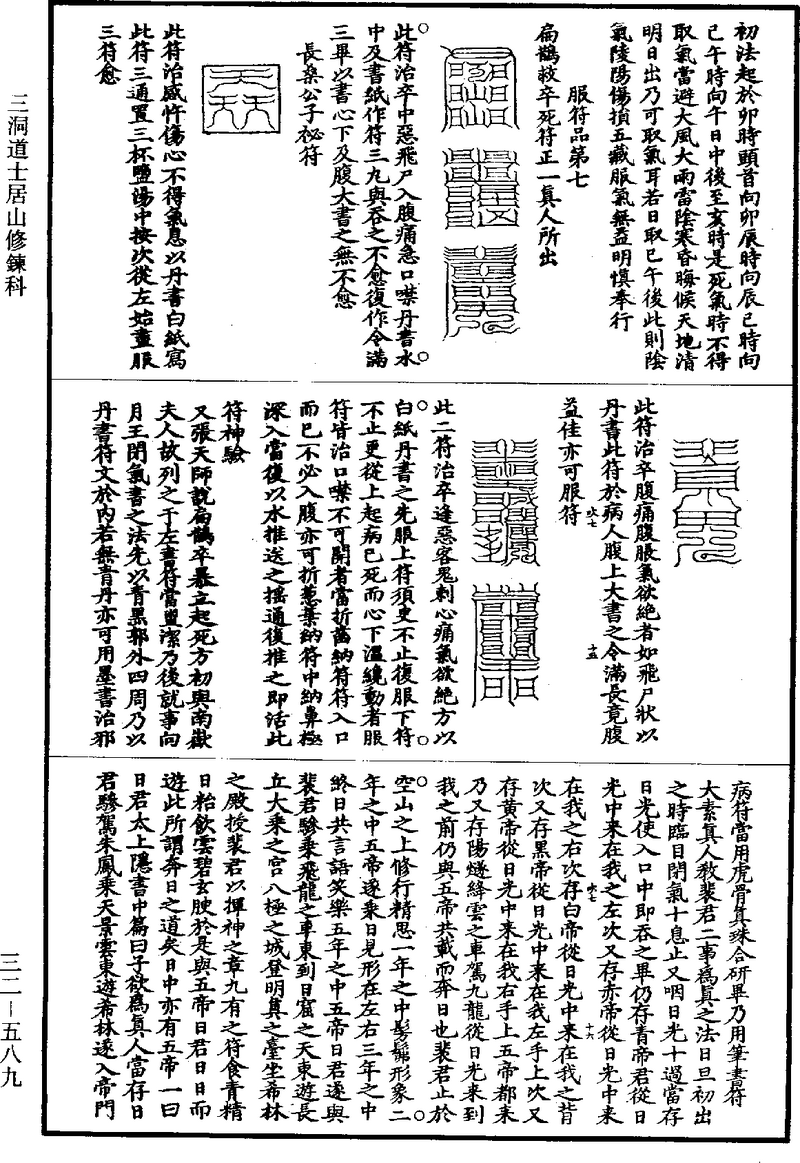 初法起於卯時頭首向卯辰時向辰巳時向
巳午時向午日中後至亥時是死氣時不得
取氣當避大風大雨雷陰寒昏晦候天地清
明日出乃可取氣耳若日取巳午後此則陰
氣陵陽傷損五藏服氣無益明慎奉行
服符品第七
扁鵲救卒死符正一真人所出
此符治卒中惡飛尸入腹痛急口噤丹書水
中及書紙作符三九與吞之不愈復作令滿
三畢以書心下及腹大書之無不愈
長桑公子祕符
此符治感忤傷心不得氣息以丹書白紙寫
此符三通置三杯鹽湯中按次從左始盡服
三符愈
此符治卒腹痛腹脹氣欲絕者如飛尸狀以
丹書此符於病人腹上大書之令滿長竟腹
益佳亦可服符
此二符治卒逢惡客鬼刺心痛氣欲絕方以
白紙丹書之先服上符須臾不止復服下符
不止更從上起病已死而心下溫纔動者服
符皆治口噤不可開者當折齒納符符入口
而已不必入腹亦可折蔥葉納符中納鼻極
深入當復以水推送之搖通復推之即活此
符神驗
又張天師說扁鵲卒暴立起死方初與南嶽
夫人故列之于左書符當盥潔乃後就事向
月王閉氣書之法先以青黑郭外四周乃以
丹書符文於內若無青丹亦可用墨書治邪
病符當用虎骨真珠合研畢乃用筆書符
大素真人教裴君二事為真之法日旦初出
之時臨目閉氣十息止又咽日光十過當存
日光使入口中即吞之畢仍存青帝君從日
光中來在我之左次又存赤帝從日光中來
在我之右次存白帝從日光中來在我之背
次又存黑帝從日光中來在我左手上次又
存黄帝從日光中來在我右手上五帝都來
乃又存陽燧絳雲之車駕九龍從日光來到
我之前仍與五帝共載而奔日也裴君止於
空山之上修行精思一年之中髣髴形象二
年之中五帝遂乘日見形在左右三年之中
終日共言語笑樂五年之中五帝日君遂與
裴君驂乘飛龍之車東到日窟之天東遊長
丘大乘之宫八極之城登明真之臺坐希林
之殿授裴君以揮神之章九有之符食青精
日粭飲雲碧玄腴於是與五帝日君日日而
遊此所謂奔日之道矣日中亦有五帝一曰
日君太上隱書中篇曰子欲為真人當存日
君驂駕朱鳳乘天景雲東遊希林遂入帝門
三洞道士居山修鍊科
三二—五八九